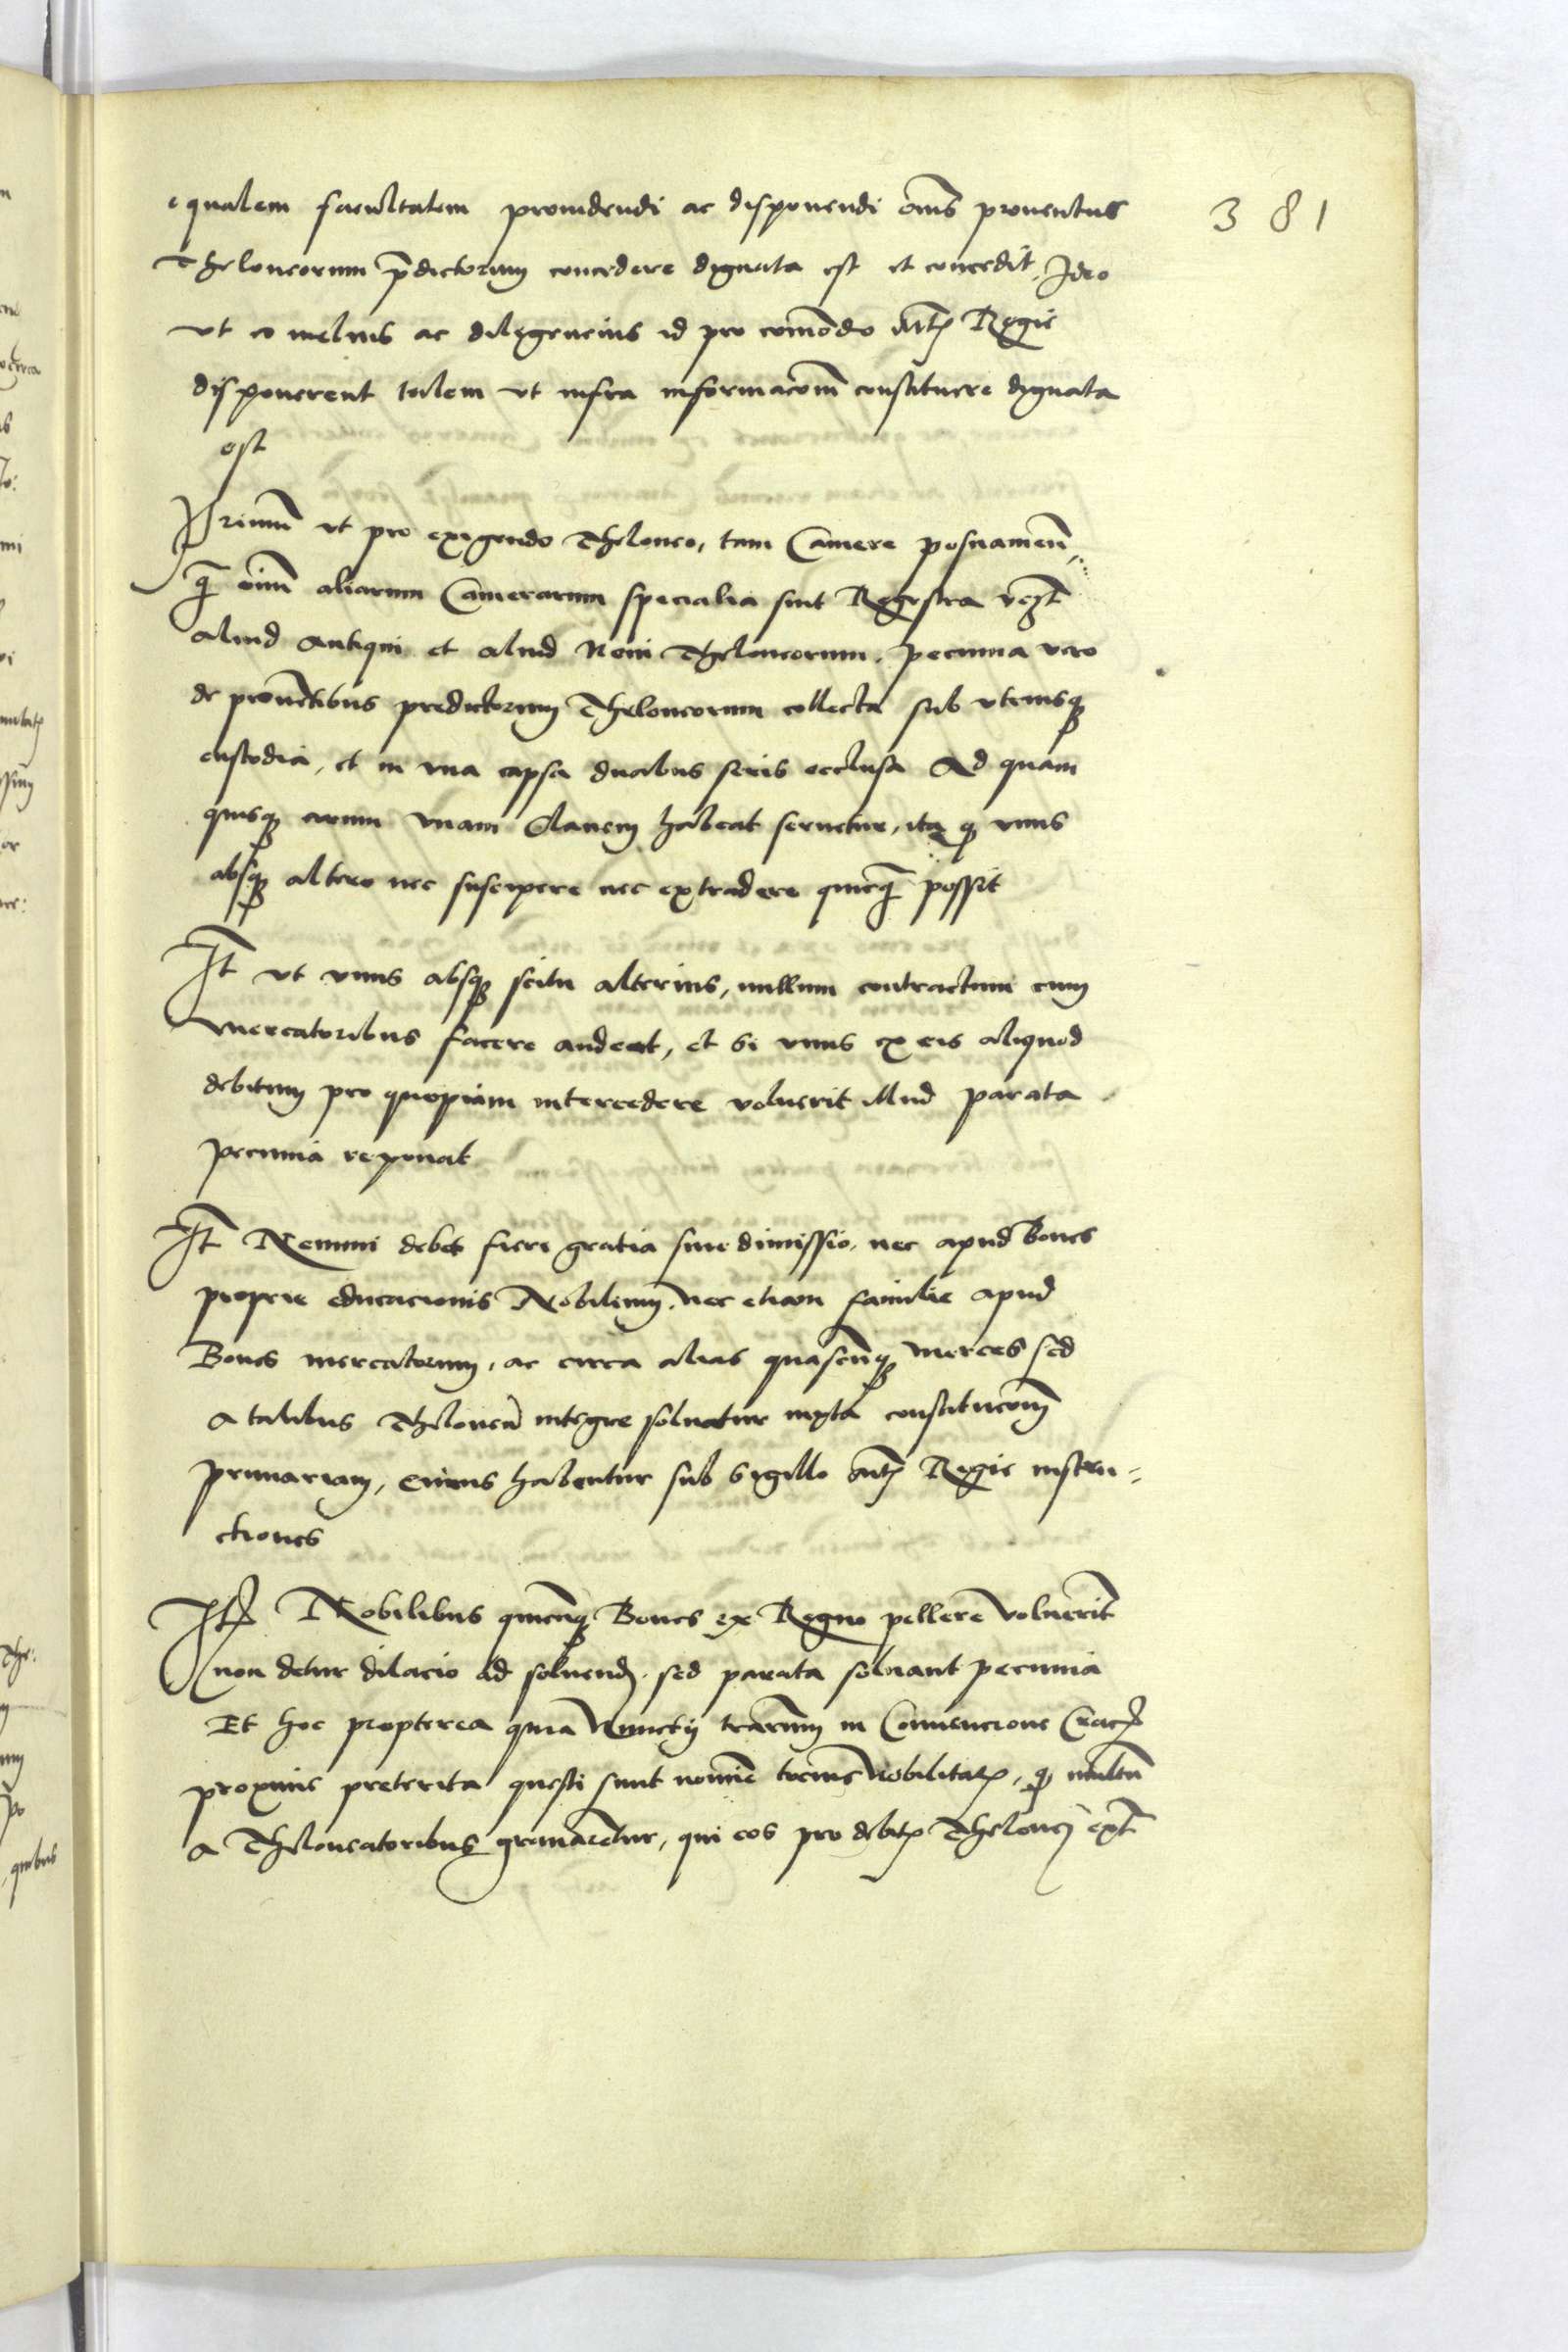 equalem facultatem prouidendi ac disponendi om̄s prouentus
Theloneorum p̄dictorum concedere dignata est et concedit, Ideo
vt eo melius ac diligencius id pro com̄odo Mt͞is Regie
disponerent talem vt infra informac͞om constituere dignata
est
381
Primū vt pro exigendo Theloneo, tam Camere posnanien̄
q̄ om̄i aliarum Camerarum specialia sint Regestra vcz͞t
aliud antiqui et aliud Noui Theloneorum. pecunia vero
de prouētibus predictorum Theloneorum collecta sub vtriusqꝫ
custodia, et in vna capsa duabus seris occlusa Ad quam
quisqꝫ eorum vnam Clauem habeat seruetur, ita qꝫ vnus
absqꝫ altero nec suscipere nec extradere quicq̄ possit
It̄ vt vnus absqꝫ scitu alterius, nullum contractum cum
mercatoribus facere audeat, et si vnus ex eis aliquod
debitum pro quopiam intercedere voluerit illud parata
pecunia reponat
It̄ Nemini debet fieri gratia siue dimissio, nec apud Boues
proprie educacionis Nobilium, nec etiam familie apud
Boues mercatorum, ac circa alias quascūqꝫ merces sed
a talibus Theloneū integre soluatur iuxta constituc͞om
primariam, cuius habentur sub sigillo Mt͞is Regie instru=
ctiones
Itꝫ Nobilibus quicūqꝫ Boues ex Regno pellere voluerīt
non detur dilacio ad soluendꝫ, sed parata soluant pecunia
Et hoc propterea quia Nunctÿ t͞rarum in Conuencione Cracꝫ
proxime preterita questi sunt nomīe tocius Nobilitat͞is, qꝫ multū
a Theloneatoribus grauarētur, qui eos pro debit͞is Thelonej ext̄